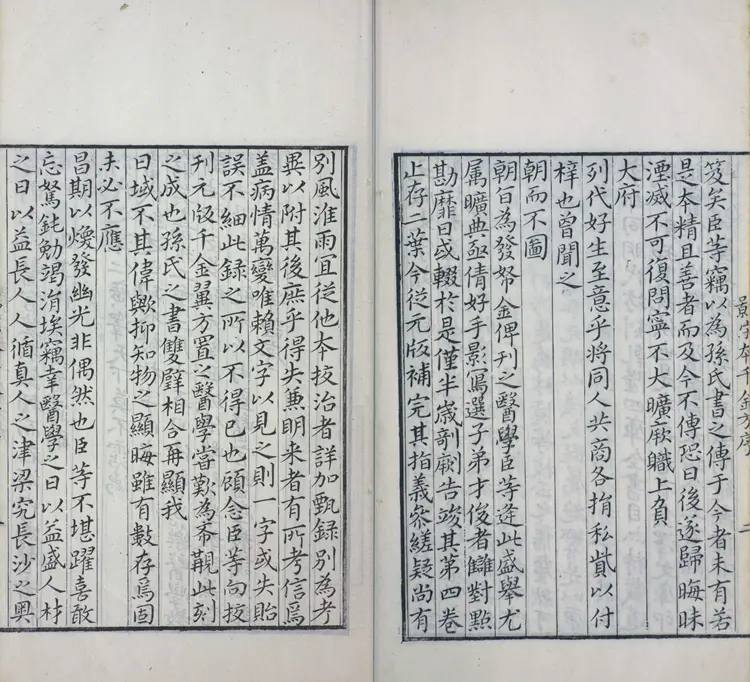 笈矣臣等竊以為孫氏書之傳于今者未有若
是本精且善者而及今不傳恐日後遂歸晦昧
湮滅不可復問寧不大曠厥職上負
大府
列代好生至意乎將同人共商各捐私貲以付
梓也曾聞之
朝而不圖
朝旨為發帑金俾刊之醫學臣等逢此盛舉尤
属曠典亟倩好手影寫選子弟才俊者讎對點
勘靡日或輟於是僅半歲剞劂告竣其第四卷
止存二葉今從元版補完其指義參縒疑尚有
別風淮雨宜從他本挍治者詳加甄錄別為考
異以附其後庶乎得失兼明来者有所考信焉
蓋病情萬變唯賴文字以見之則一字或失貽
誤不細此錄之所以不得已也顧念臣等向挍
刊元版千金翼方置之醫學當歎為希覯此刻
之成也孫氏之書雙璧相合再顯我
日域不其偉歟抑知物之顯晦雖有數存焉固
未必不應
昌期以煥發幽光非偶然也臣等不堪躍喜敢
忘駑鈍勉竭涓埃竊幸醫學之日以益盛人材
之日以益長人人循真人之津梁究長沙之奧